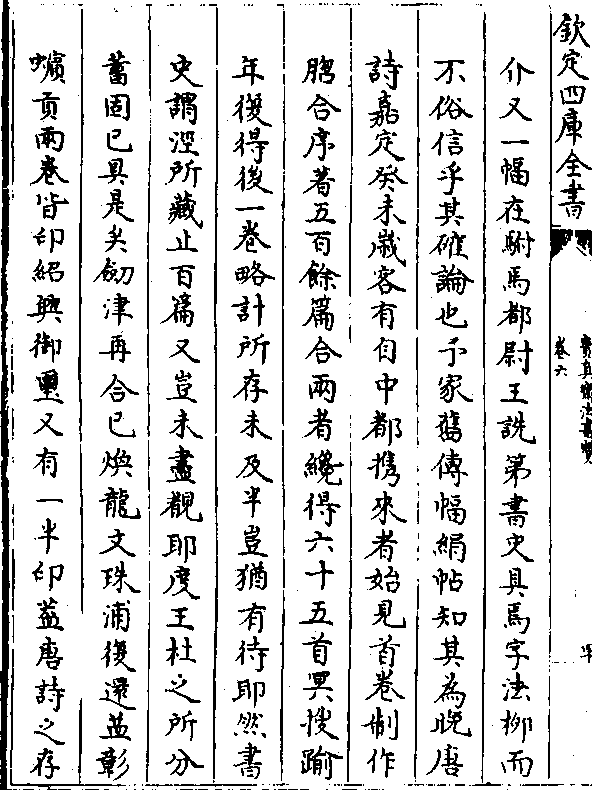 欽定四庫全書
寶真齋法書贊
卷六
介又一幅在駙馬都尉王詵第書史具焉字法柳而
不俗信乎其確論也予家舊傳幅絹帖知其為晚唐
詩嘉定癸未嵗客有自中都攜來者始見首卷制作
脗合序著五百餘篇合兩者纔得六十五首冥搜踰
年復得後一卷略計所存未及半豈猶有待耶然書
史謂涇所藏止百篇又豈未盡觀耶度王杜之所分
蓄固已具是矣劒津再合已煥龍文珠浦復還益彰
蠙貢兩卷皆印紹興御璽又有一半印葢唐詩之存